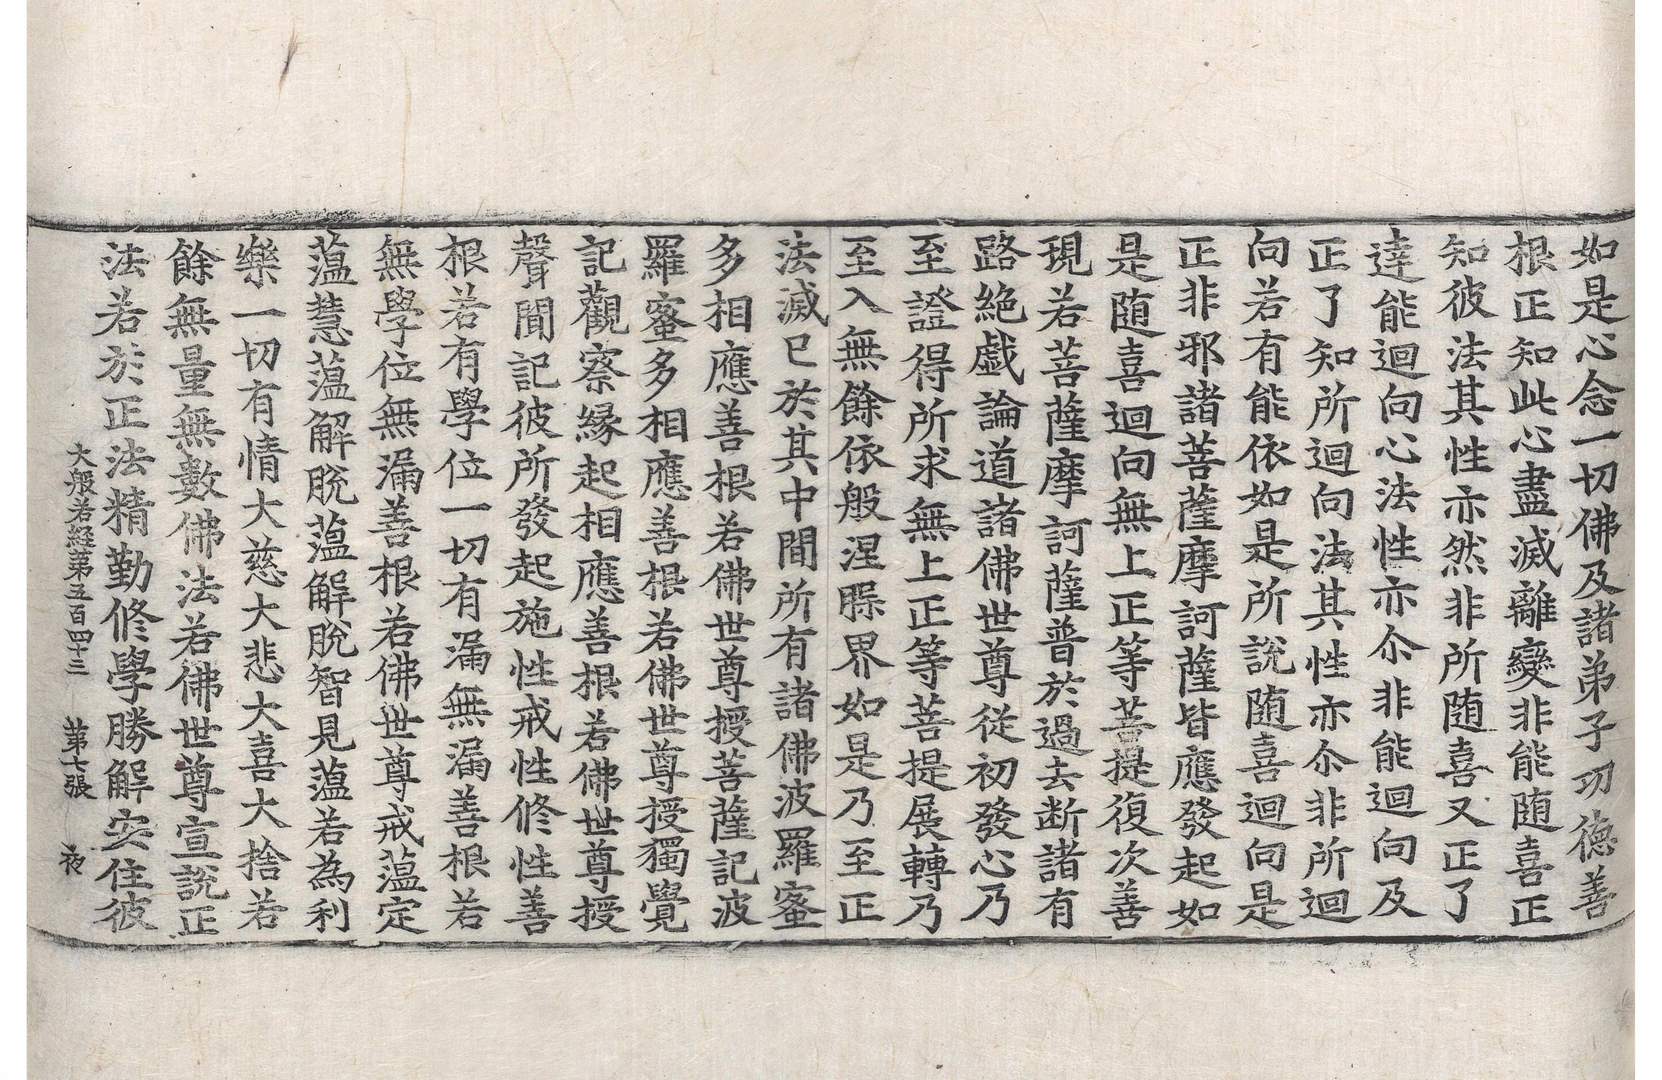 如是心念一切佛及諸弟子功德善
根正知此心盡滅離變非能随喜正
知彼法其性亦然非所随喜又正了
達能迴向心法性亦尒非能迴向及
正了知所迴向法其性亦尒非所迴
向若有能依如是所說随喜迴向是
正非邪諸菩薩摩訶薩皆應發起如
是随喜迴向無上正等菩提復次善
現若菩薩摩訶薩普於過去断諸有
路絶戯論道諸佛世尊從初發心乃
至證得所求無上正等菩提展轉乃
至入無餘依般涅槃界如是乃至正
法滅已於其中間所有諸佛波羅蜜
多相應善根若佛世尊授菩薩記波
羅蜜多相應善根若佛世尊授獨覺
記觀察縁起相應善根若佛世尊授
聲聞記彼所發起施性戒性修性善
根若有學位一切有漏無漏善根若
無學位無漏善根若佛世尊戒蕰定
蕰慧蕰解脫蕰解脫智見蕰若為利
樂一切有情大慈大悲大喜大捨若
餘無量無數佛法若佛世尊宣說正
法若於正法精勤修學勝解安住彼
大般若経苐五百四十三 苐七張 夜